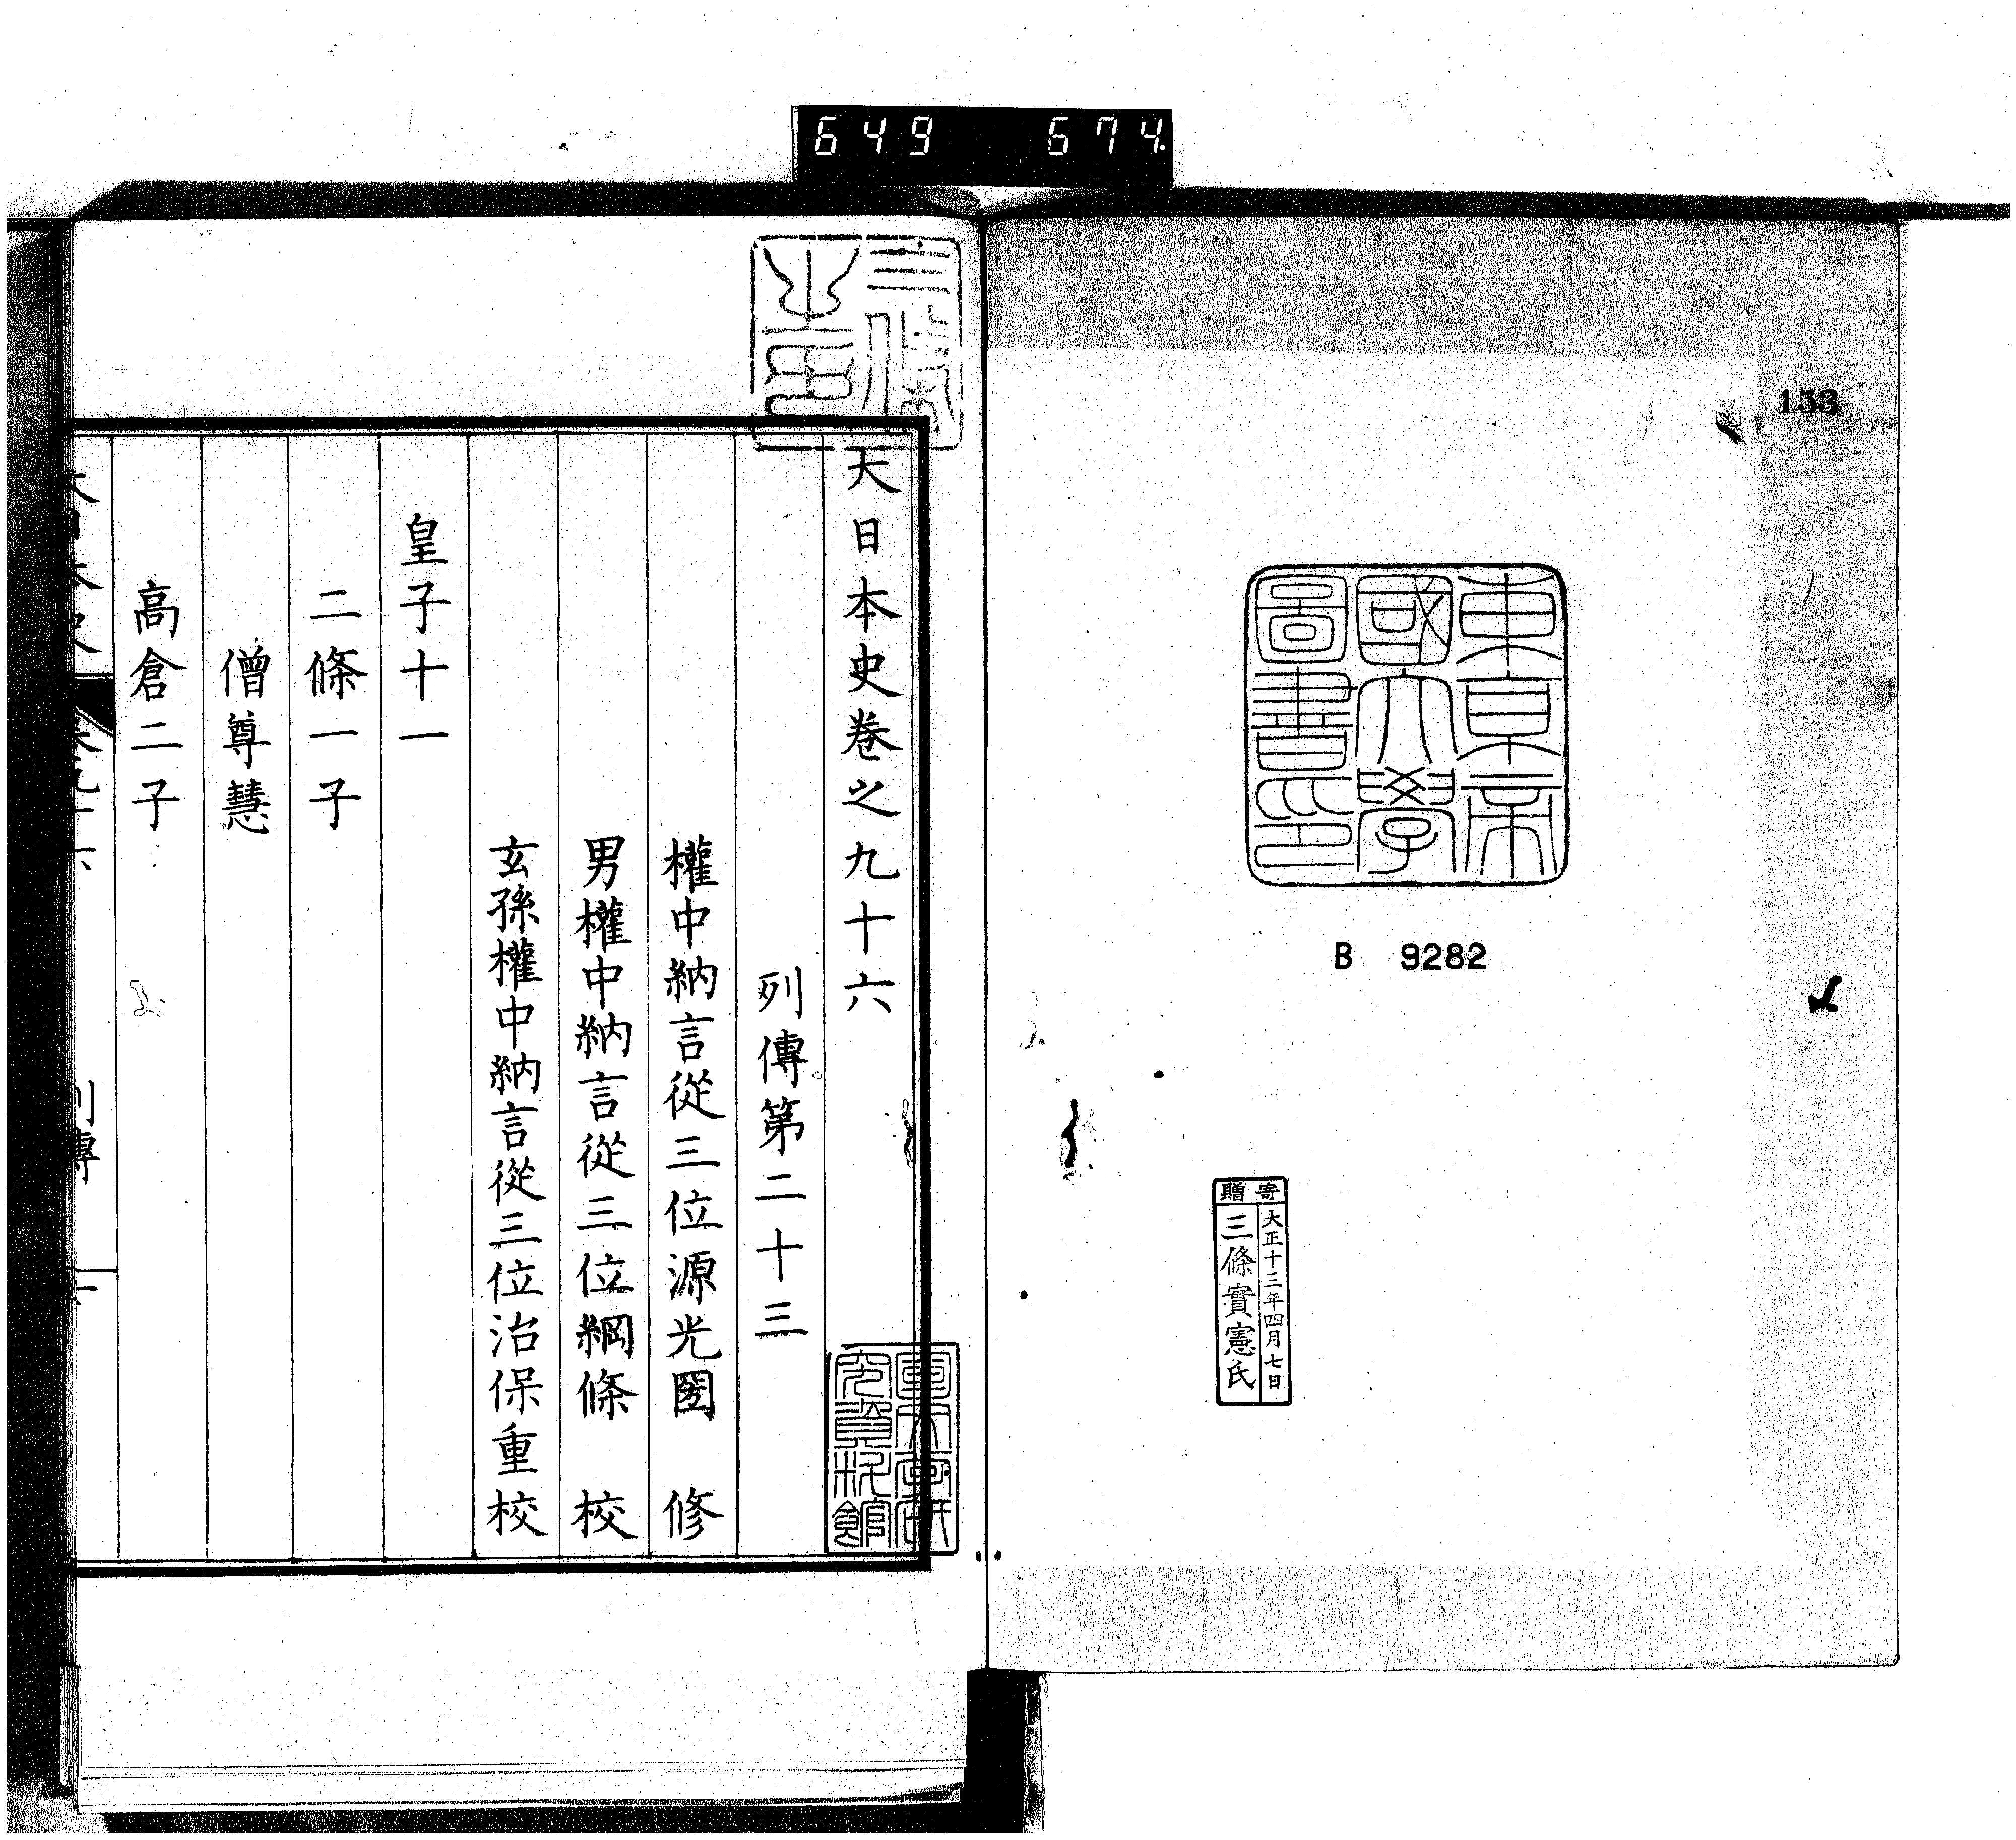 649 674.
153
東京帝
國大學
圖書印
B 9282
寄贈
大正十三年四月七日
三條實憲氏
大日本史卷之九十六
列傳第二十三
權中納言從三位源光圀 修
男權中納言從三位綱條 校
玄孫權中納言從三位治保重校
皇子十一
二條一子
僧尊慧
高倉二子
大日本史 卷九十六 列傳